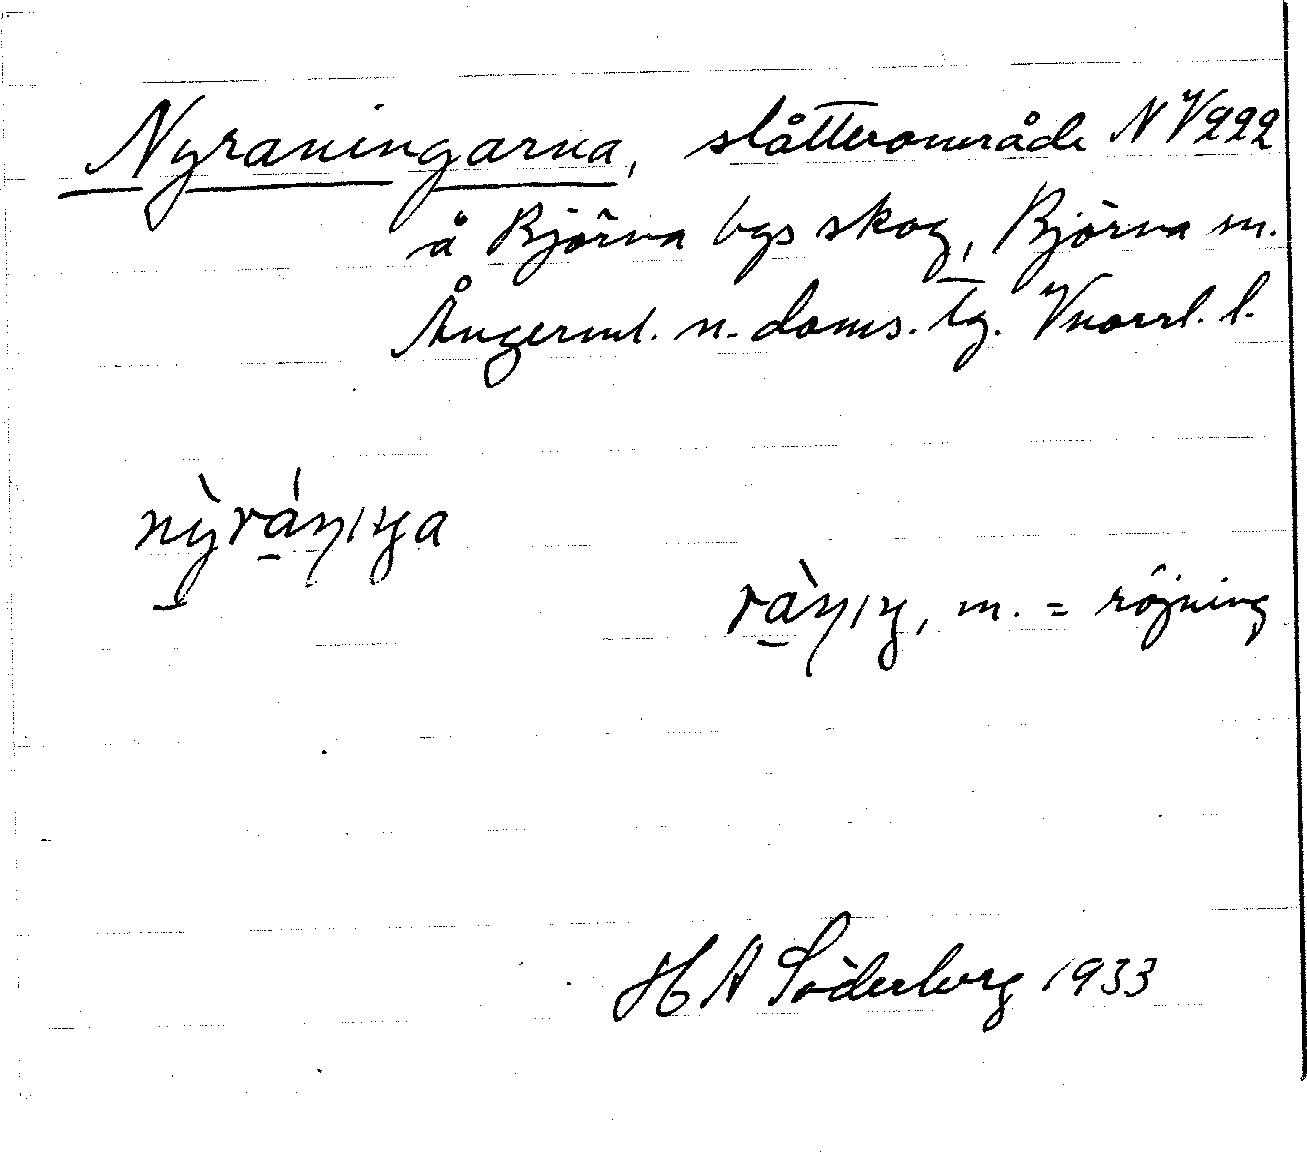 Nyraningarna, slåtterområde NV222
å Björna bys skog, Björna sn.
Ångerml. n. doms. tg. Vnorrl. l.
nỳráŋıŋa
ràŋıŋ, m. = röjning
H A Söderberg 1933